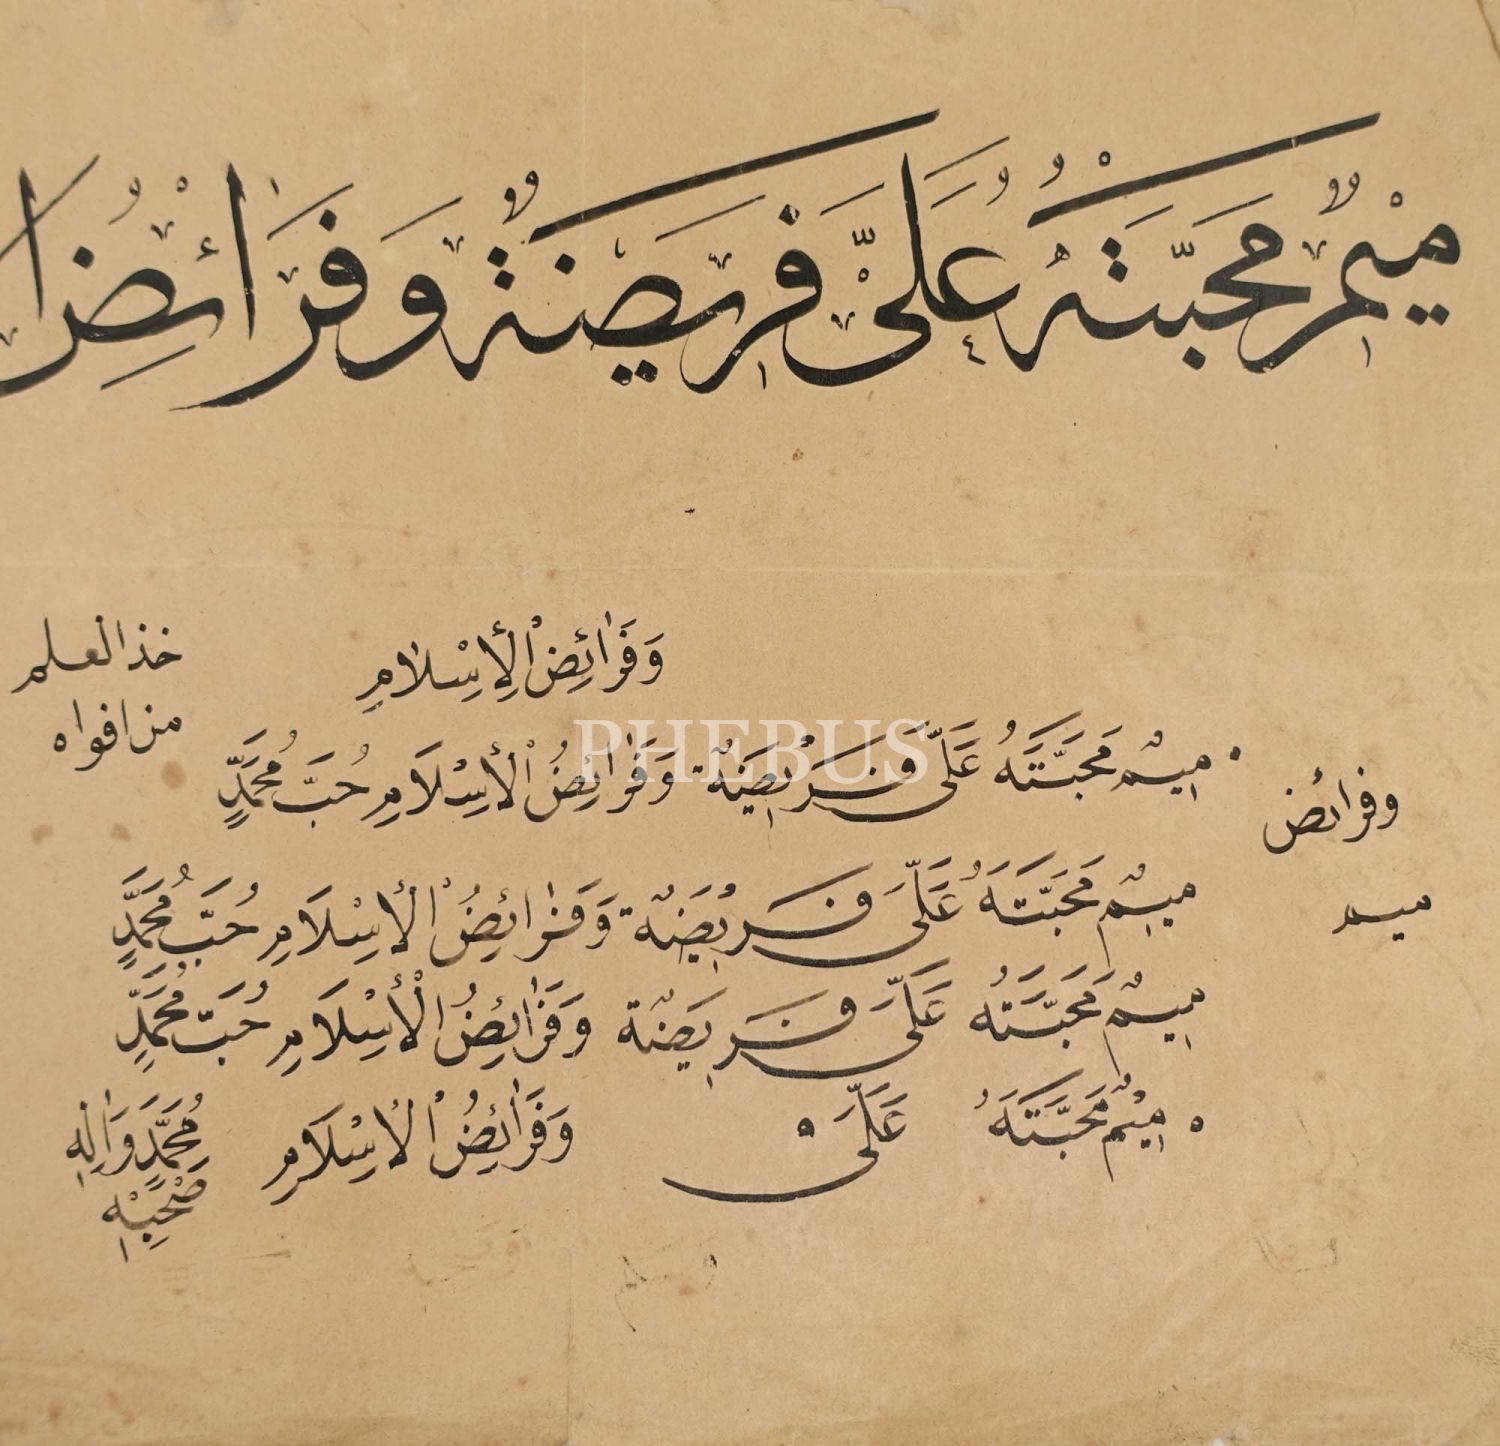 مِيْمٌ مَحَبَّتَهُ عَلَىَّ فَرِيضَةٌ وَفَرَائِضُ ا
وَفَرَائِضُ الْأِسْلَامِ
خذ العلم
من افواه
مِيمٌ مَحَبَّتَهُ عَلَىَّ فَرِيضَةٌ وَفَرَائِضُ الْأِسْلَامِ حُبَّ مُحَمَّدٍ
وفرائض
مِيمٌ مَحَبَّتَهُ عَلَىَّ فَرِيضَةٌ وَفَرَائِضُ الْأِسْلَامِ حُبَّ مُحَمَّدٍ
ميم
مِيمٌ مَحَبَّتَهُ عَلَىَّ فَرِيضَةٌ وَفَرَائِضُ الْأِسْلَامِ حُبَّ مُحَمَّدٍ
مِيْمٌ مَحَبَّتَهُ عَلَىَّ وَفَرَائِضُ الْأِسْلَامِ مُحَمَّدٍ وَاٰلِهِ
صَحْبِهِ
PHEBUS